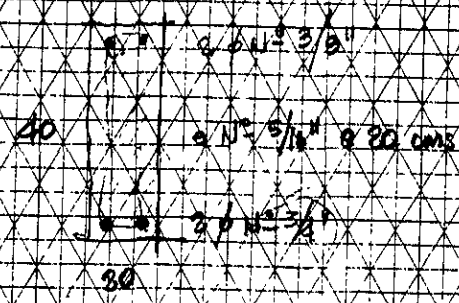 2 ϕ Nº 3/8"
40
e Nº 5/16" @ 20 cms
2 ϕ Nº 3/4"
30